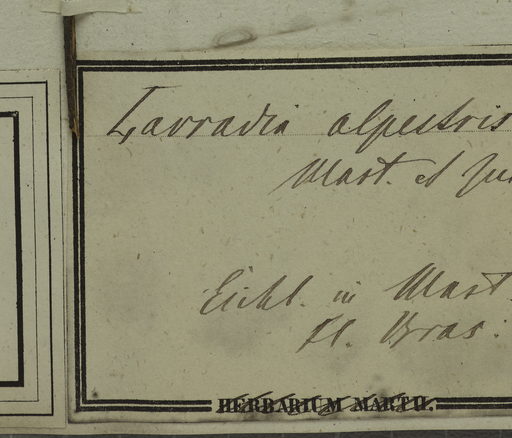 Lavradia alpestris
Mart. et Zuc
Eichl. in Mart.
fl. Bras.
HERBARIUM MARTII.